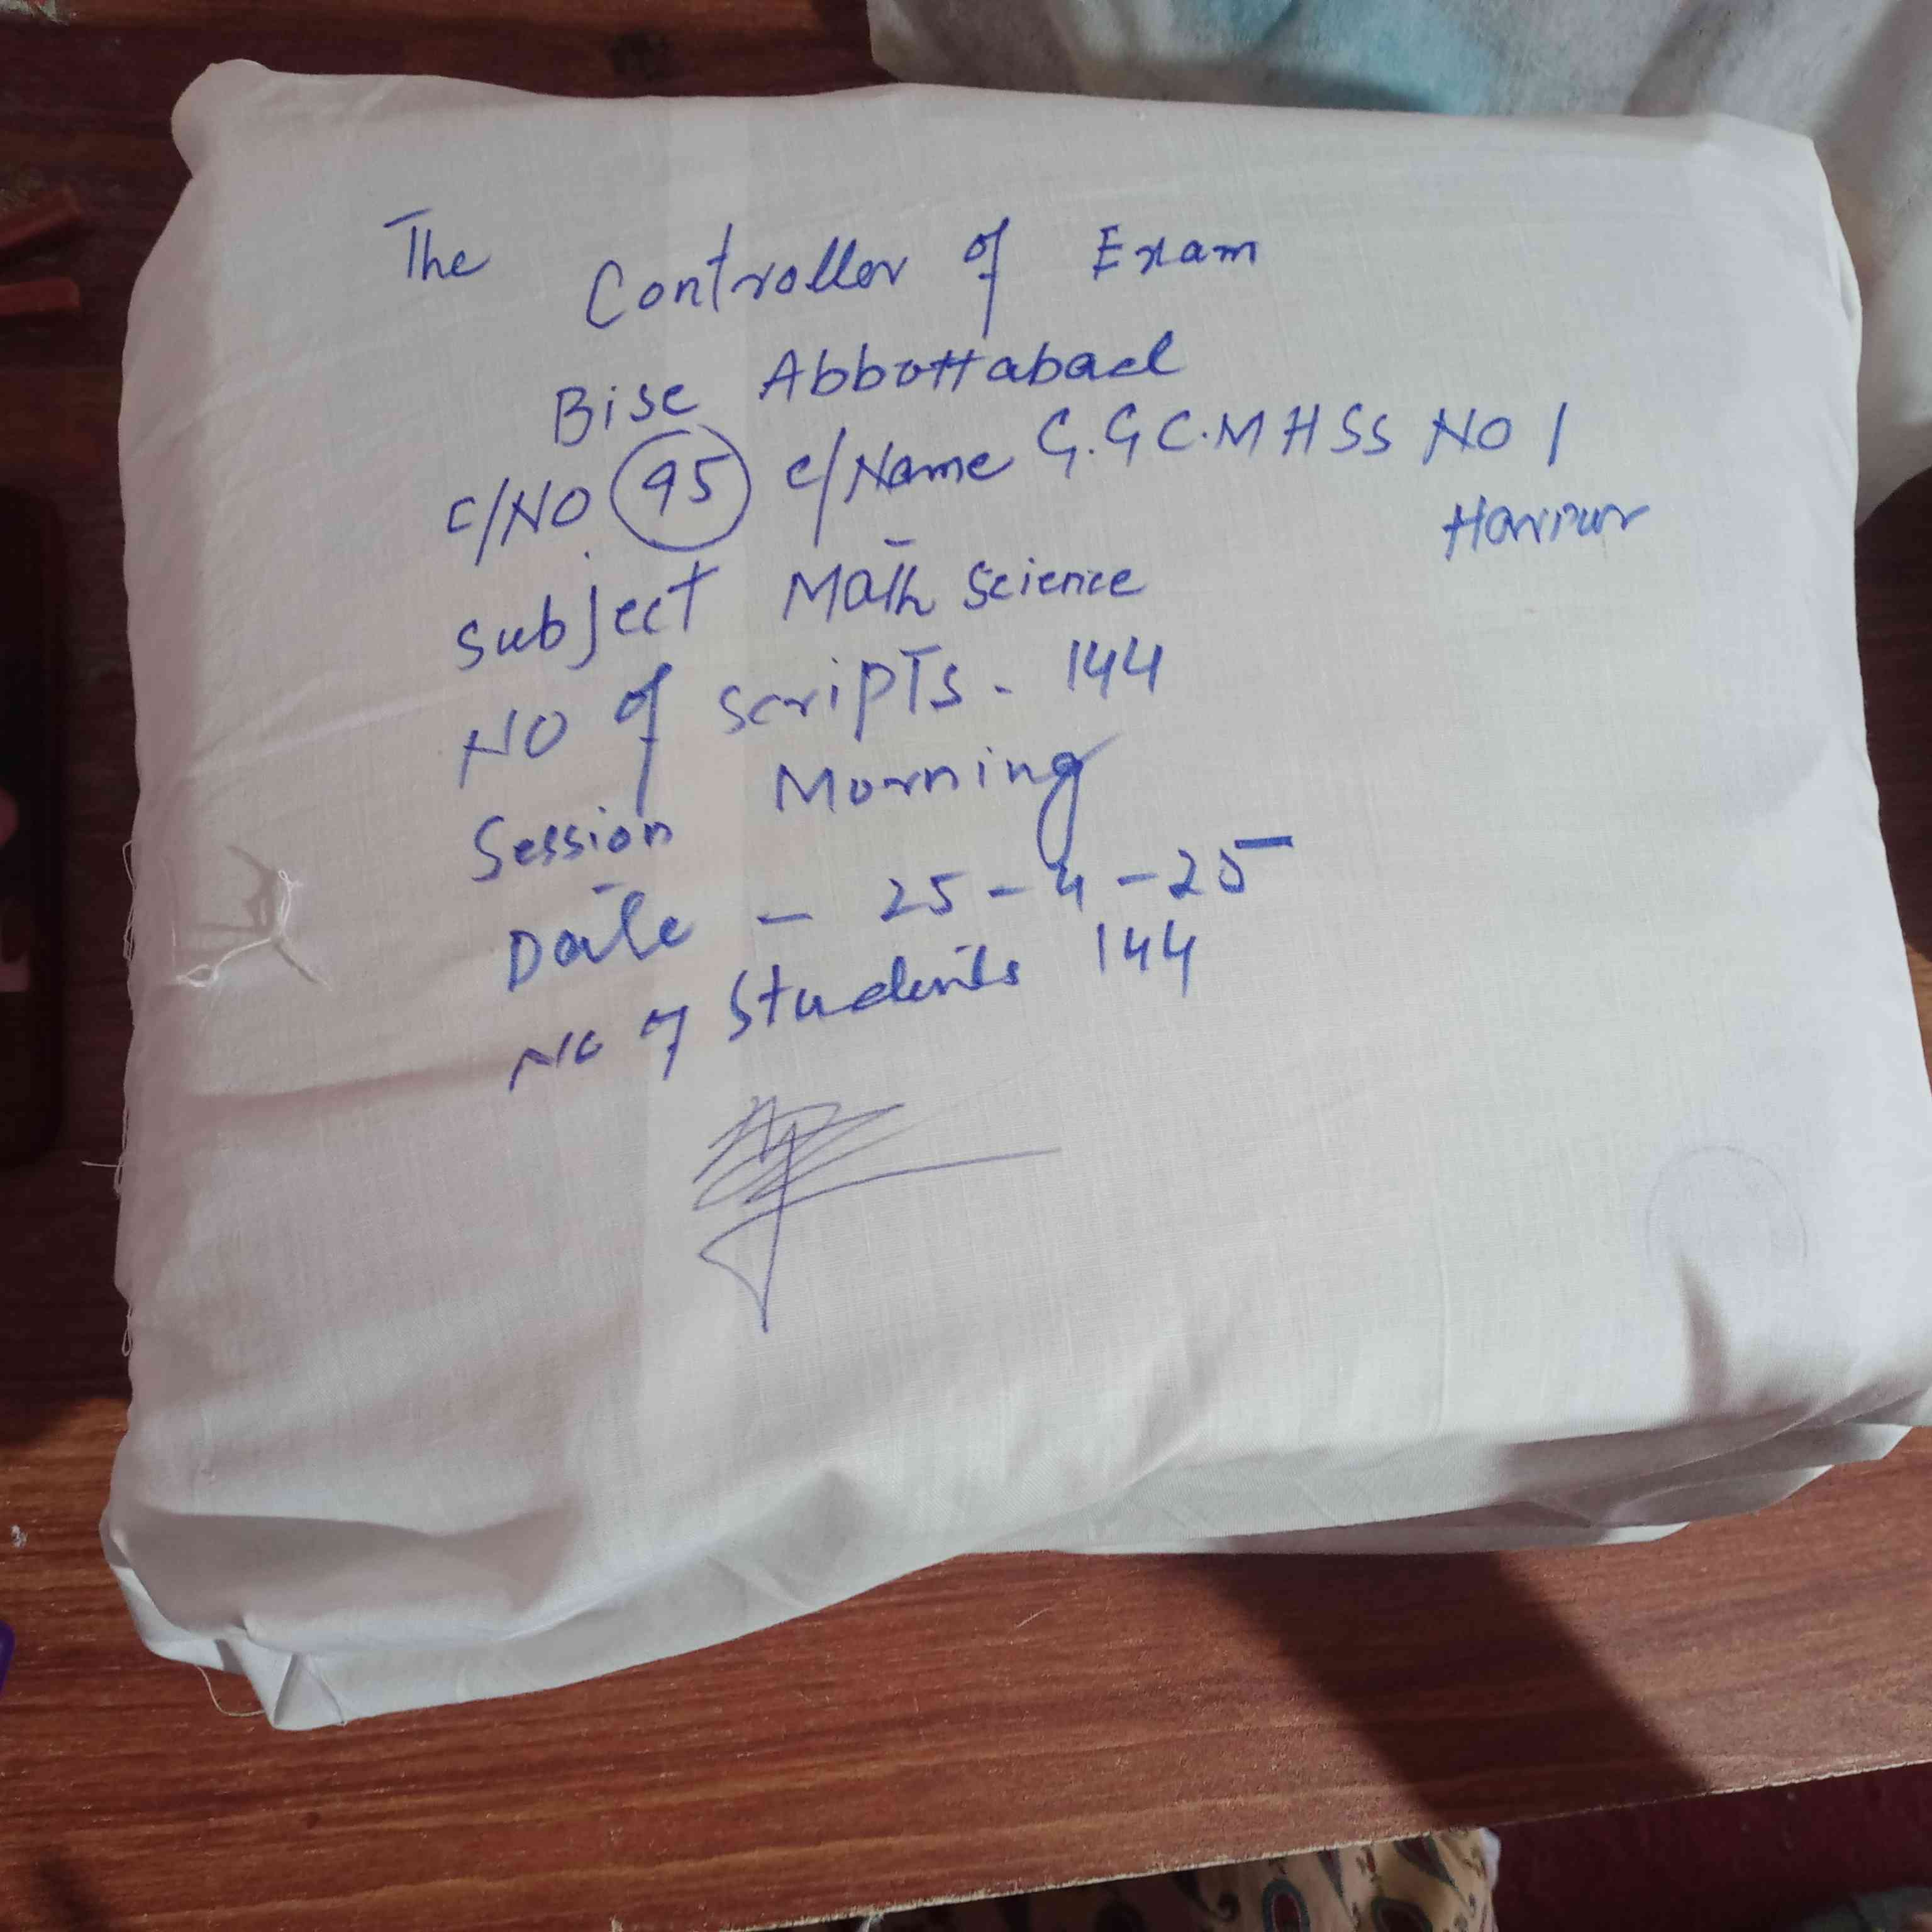 The Controller of Exam
Bise Abbottabad
C/NO 95 c/Name G.G C.M H SS NO 1
Haripur
Subject Math Science
NO of scripts - 144
Session Morning
Date - 25 - 4 - 25
NO of Students 144